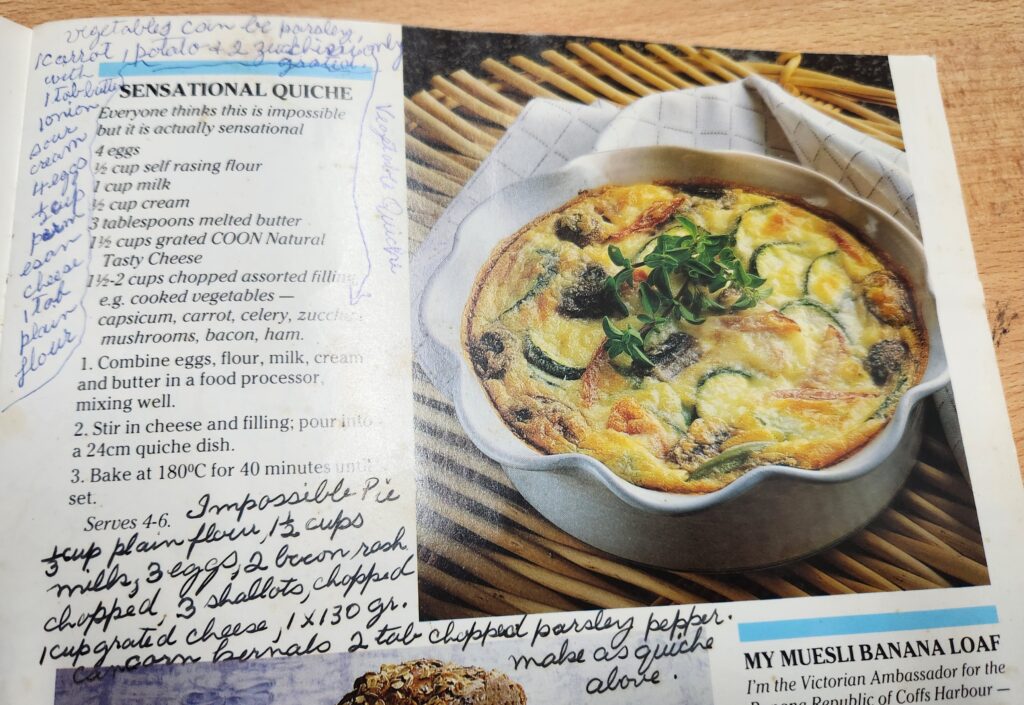 vegetables can be parsley,
1 carrot 1 potato + 2 zucchini only
with grated
1 tab butter
1 onion
sour
cream
4 eggs
½ cup
parm
esan
cheese
1 tab
plain
flour
Vegetable Quiche
SENSATIONAL QUICHE
Everyone thinks this is impossible
but it is actually sensational
4 eggs
½ cup self rasing flour
1 cup milk
½ cup cream
3 tablespoons melted butter
1½ cups grated COON Natural
Tasty Cheese
1½-2 cups chopped assorted filling
e.g. cooked vegetables —
capsicum, carrot, celery, zucchini
mushrooms, bacon, ham.
1. Combine eggs, flour, milk, cream
and butter in a food processor,
mixing well.
2. Stir in cheese and filling; pour into
a 24cm quiche dish.
3. Bake at 180ºC for 40 minutes until
set.
Serves 4-6.
Impossible Pie
cup plain flour, 1½ cups
milk, 3 eggs, 2 bacon rash
chopped, 3 shallots, chopped
1 cup grated cheese, 1 x 130 gr.
can corn kernals 2 tab chopped parsley pepper.
make as quiche
above.
MY MUESLI BANANA LOAF
I'm the Victorian Ambassador for the
Banana Republic of Coffs Harbour —